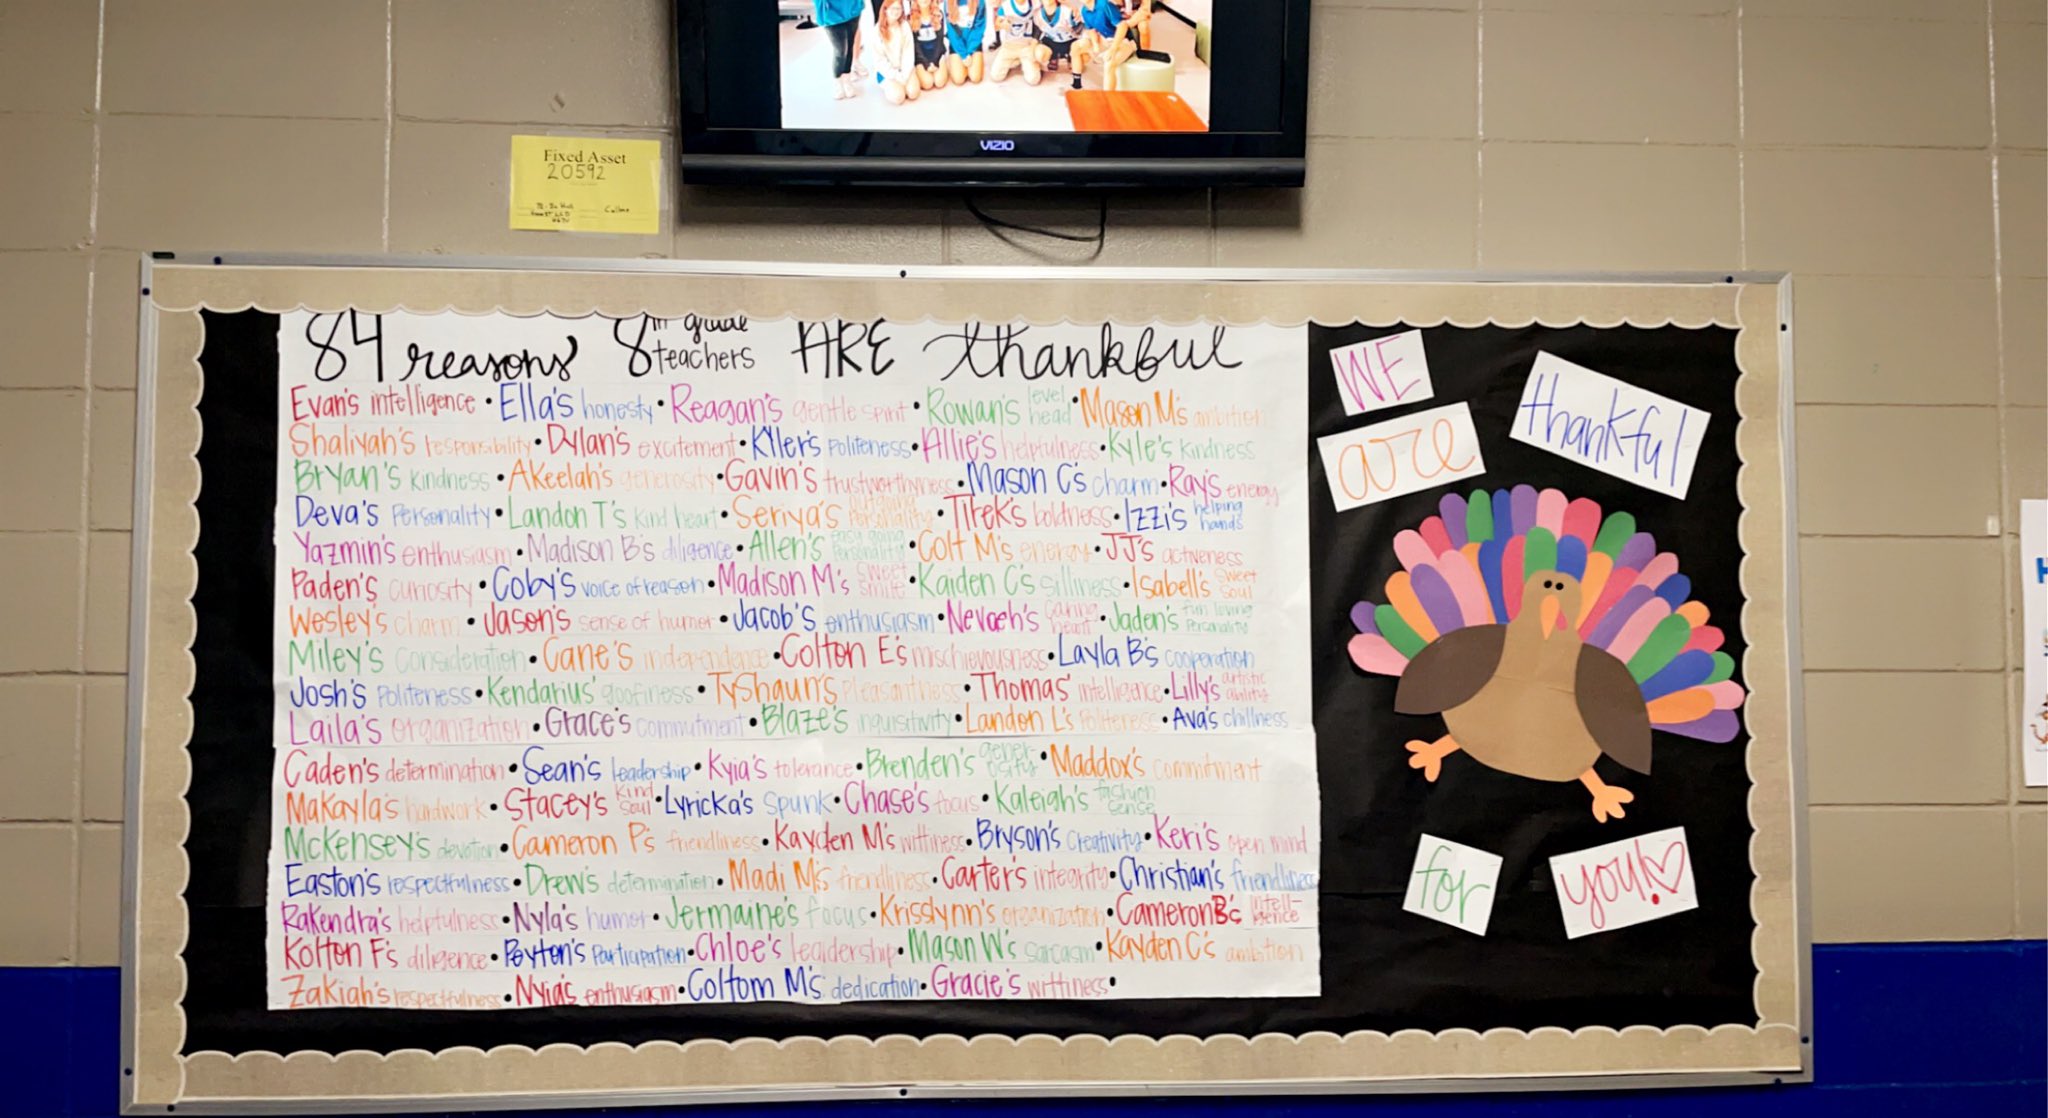 VIZIO
Fixed Asset
20592
84 reasons 8th grade teachers ARE thankful
Evan's intelligence • Ella's honesty • Reagan's gentle spirit • Rowan's level head • Mason M's ambition
Shaliyah's responsibility • Dylan's excitement • Kyler's politeness • Allie's helpfulness • Kyle's kindness
Bryan's kindness • Akeelah's generosity • Gavin's trustworthyness • Mason C's charm • Ray's energy
Deva's Personality • Landon T's kind heart • Seriya's outgoing personality • Tirek's boldness • Izzi's helping hands
Yazmin's enthusiasm • Madison B's diligence • Allen's easy going personality • Colt M's energy • JJ's activeness
Paden's curiosity • Coby's voice of reason • Madison M's sweet smile • Kaiden C's silliness • Isabell's sweet soul
Wesley's charm • Jason's sense of humor • Jacob's enthusiasm • Nevaeh's caring heart • Jaden's fun loving Personality
Miley's consideration • Cane's independence • Colton E's mischievousness • Layla B's cooperation
Josh's Politeness • Kendarius' goofiness • TyShaun's pleasantness • Thomas' intelligence • Lilly's artistic ability
Laila's organization • Grace's commutment • Blaze's inquisitivity • Landon L's Politeness • Ava's chillness
Caden's determination • Sean's leadership • Kyia's tolerance • Brenden's gener-osity • Maddox's commitment
Makayla's hardwork • Stacey's kind soul • Lyricka's spunk • Chase's focus • Kaleigh's fashion sense
McKensey's devotion • Cameron P's friendliness • Kayden M's wittiness • Bryson's Creativity • Keri's open mind
Easton's respectfulness • Drew's determination • Madi M's friendliness • Carter's integrity • Christian's friendliness
Rakendra's helpfulness • Nyla's humor • Jermaine's focus • Krisslynn's organization • Cameron B's intell-igence
Kolton F's diligence • Peyton's Participation • Chloe's leadership • Mason W's sarcasm • Kayden C's ambition
Zakiah's respectfulness • Nyia's enthusiasm • Coltom M's dedication • Gracie's wittiness •
WE
are
thankful
for
you!